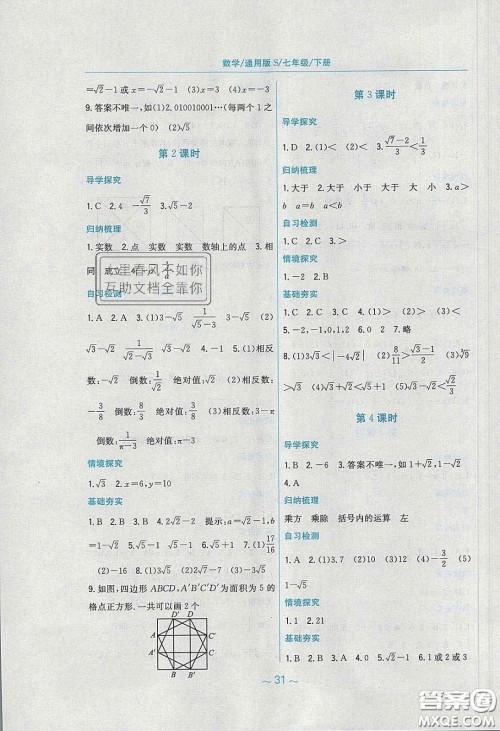 数学/通用版S/七年级/下册
=√2-1或x=-√2-1 (3)x=3 (4)x=-3
9.答案不唯一,如(1)2.010010001…(每两个1之
间依次增加一个0) (2)√5
第2课时
导学探究
1.C 2.4 -√7/3 3.√5-2
归纳梳理
1.实数 2.点 实数 实数 数轴上的点 3.相
同 成立 4.-a
自习检测
1.A 2.A 3.(1)3-√5 1/√5 3-√5 (2)
√3-√2
4.-√11 5.(1)相反
数:-√2 倒数:
绝对值:√2 (2)相反数:
-3/8 倒数:8/3 绝对值:3/8 (3)相反数:3-π
倒数:1/(π-3) 绝对值:π-3
情境探究
1.√3 2.x=6,y=10
基础夯实
1.B 2.B 3.A 4.2 提示:a=√2-1,b
=1-(√2-1)=2-√2 5.B 6.B 7.(1)17/16
(2)-16 8.(1)-5√3 (2)2√7-7 (3)-√5
9.如图,四边形ABCD,A'B'C'D'为面积为5的
格点正方形.一共可以画2个
D' D
A C'
A' C
B' B
第3课时
导学探究
1.D 2.(1)C (2)< (3)(√7-2)/3<1/3
归纳梳理
1.大于 大于 小于 大于 大 小 3.a>
b a=b a<b
自习检测
1.C 2.C 3.<
情境探究
1.-2 2.B
基础夯实
1.D 2.B 3.C 4.D
5.-2,-1,0,1,2 6.0 7.略
8.(1)3√3<|-4√2| (2)8/11>√3-1/2 (3)∛9
>√3 (4)√3+√2>√5+1 (5)√3-√2<√2/3
第4课时
导学探究
1.B 2.-6 3.答案不唯一,如1+√2,1-√2
4.A
归纳梳理
乘方 乘除 括号内的运算 左
自习检测
1.A 2.(1)3.7 (2)12 (3)2 (4)-3/2 (5)
1-√5
情境探究
1.1 2.21
基础夯实
1.C 2.B 3.A 4.D 5.√2-2 6.1或2或3
~31~
十里春风不如你
互助文档全靠你
答案圈
MXQE.COM